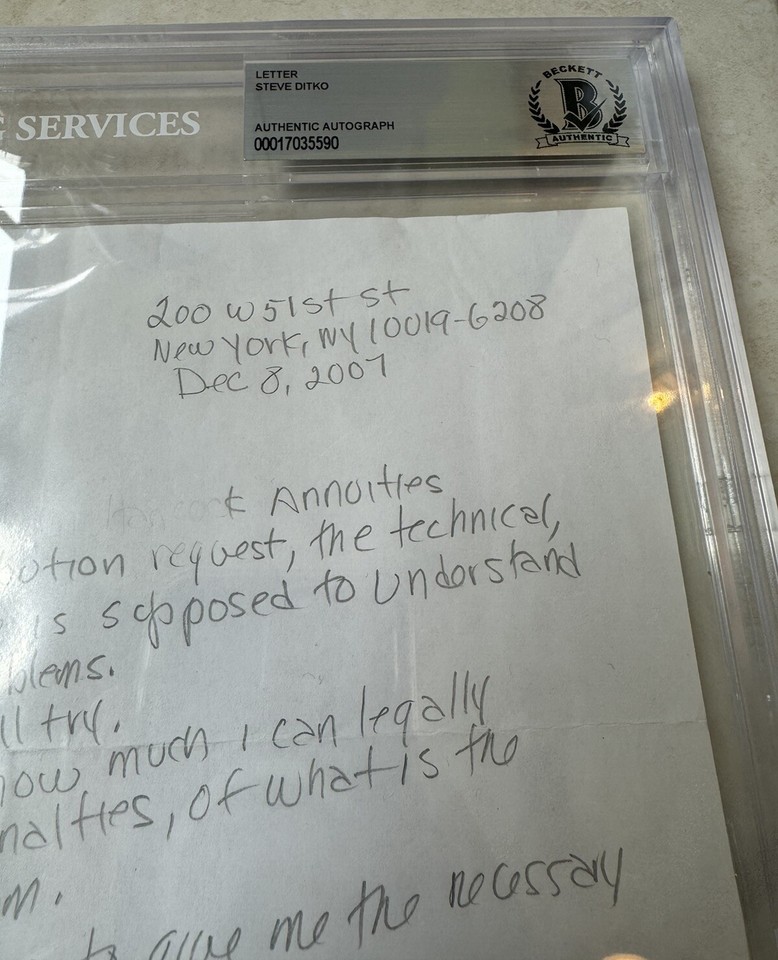 LETTER
STEVE DITKO
AUTHENTIC AUTOGRAPH
00017035590
BECKETT
B
AUTHENTIC
G SERVICES
200 W 51st st
New York, NY 10019-6208
Dec 8, 2007
k Annuities
bution request, the technical,
is supposed to understand
blems.
ll try.
how much I can legally
nalties, of what is the
m.
to give me the necessary